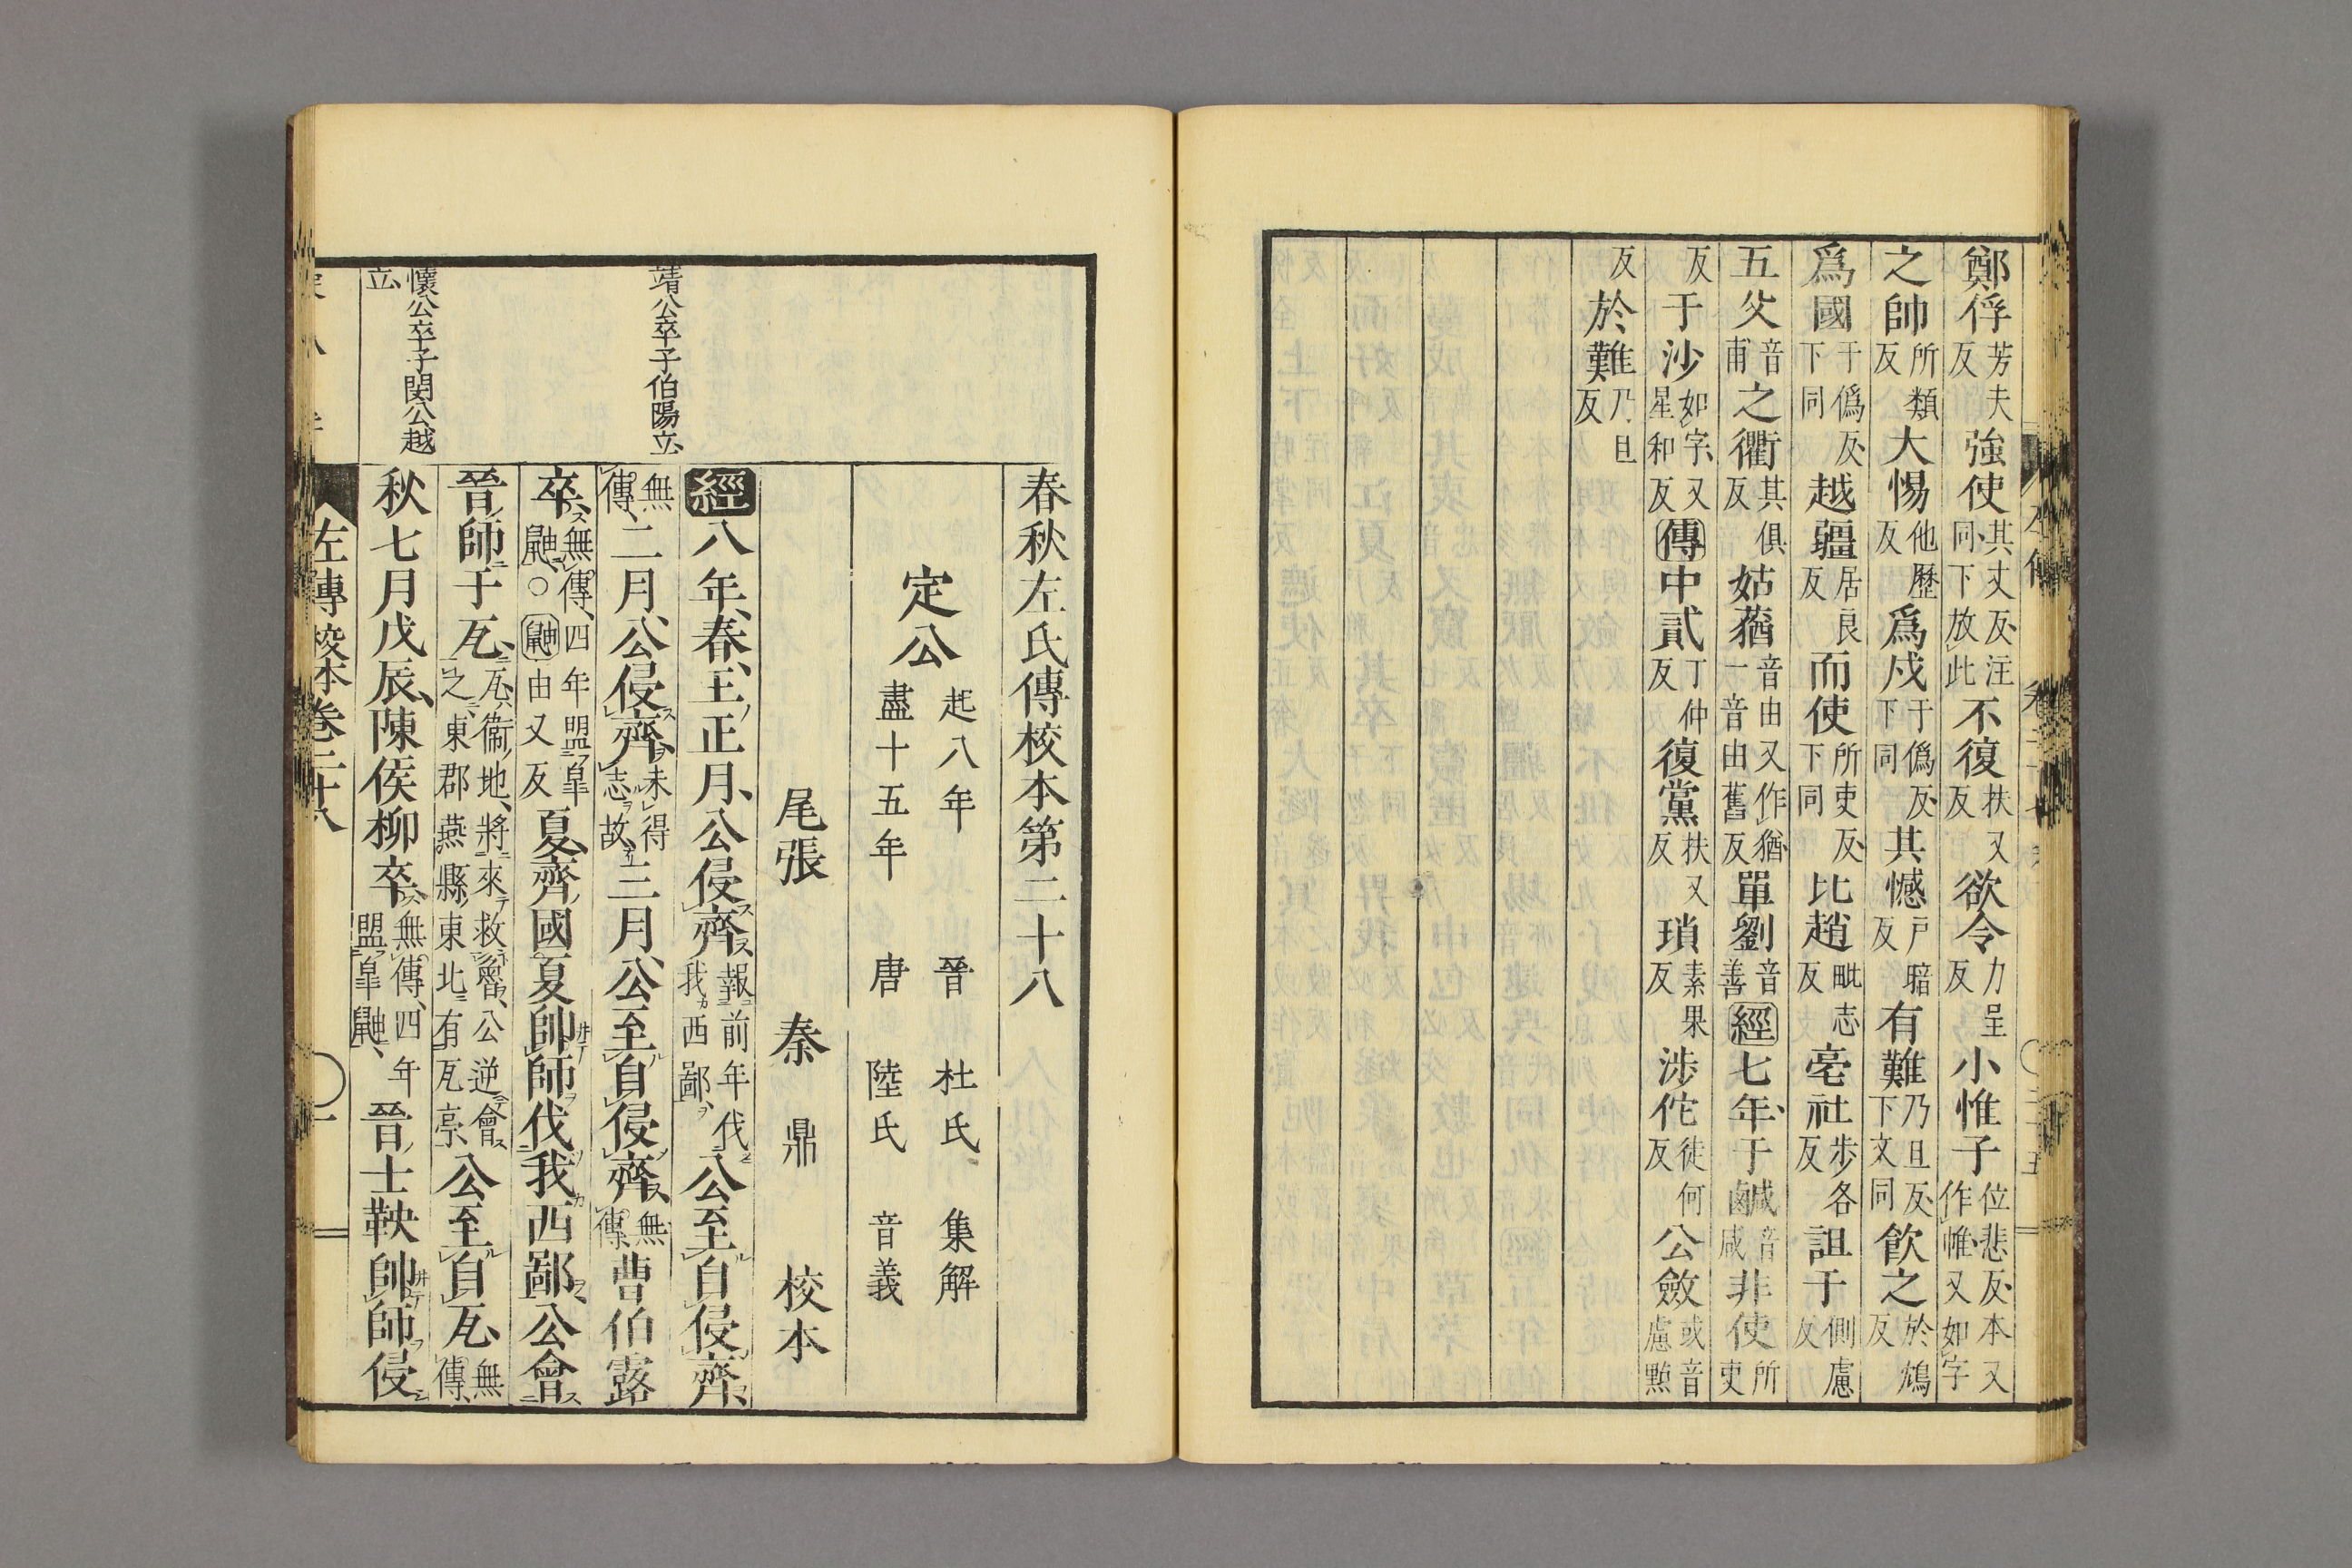 鄭俘芳夫反強使其丈反注同下放此不復扶又反欲令力呈反小惟子位悲反本又作帷又如字
之帥所類反大惕他歷反爲戍于僞反下同其憾戸暗反有難乃旦反下文同飮之於鴆反
爲國于僞反下同越疆居良反而使所吏反下同比趙毗志反亳社步各反詛于側慮反
五父音甫之衢其俱反姑蕕音由又作猶一音由舊反單劉音善經七年于鹹音咸非使所吏
反于沙如字又星和反傳中貳丁仲反復黨扶又反瑣素果反涉佗徒何反公斂或音慮點
反於難乃旦反
春秋左氏傳校本第二十八
定公 起八年盡十五年 晉 杜氏 集解 唐 陸氏 音義
尾張 秦 鼎 校本
靖公卒子伯陽立
經八年春王正月公侵齊報前年伐我西鄙公至自侵齊
無傳二月公侵齊未得志故三月公至自侵齊無傳曹伯露
卒無傳四年盟皐鼬○鼬由又反夏齊國夏帥師伐我西鄙公會
晉師于瓦瓦衞地將來救魯公逆會之東郡燕縣東北有瓦亭公至自瓦無傳
懷公卒子閔公越立
秋七月戊辰陳侯柳卒無傳四年盟皐鼬晉士鞅帥師侵
左傳校本卷二十八
一